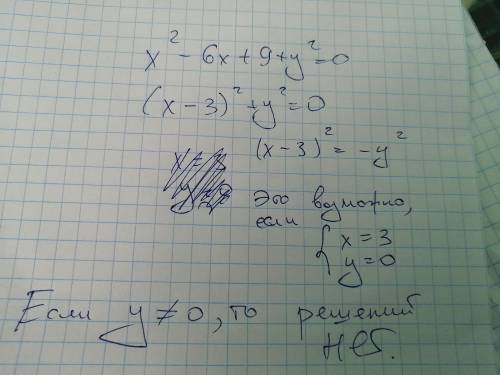 x² - 6x + 9 + y² = 0
(x - 3)² + y² = 0
(x - 3)² = -y²
Это возможно,
если
{ x = 3
y = 0
Если y ≠ 0, то решений
нет.